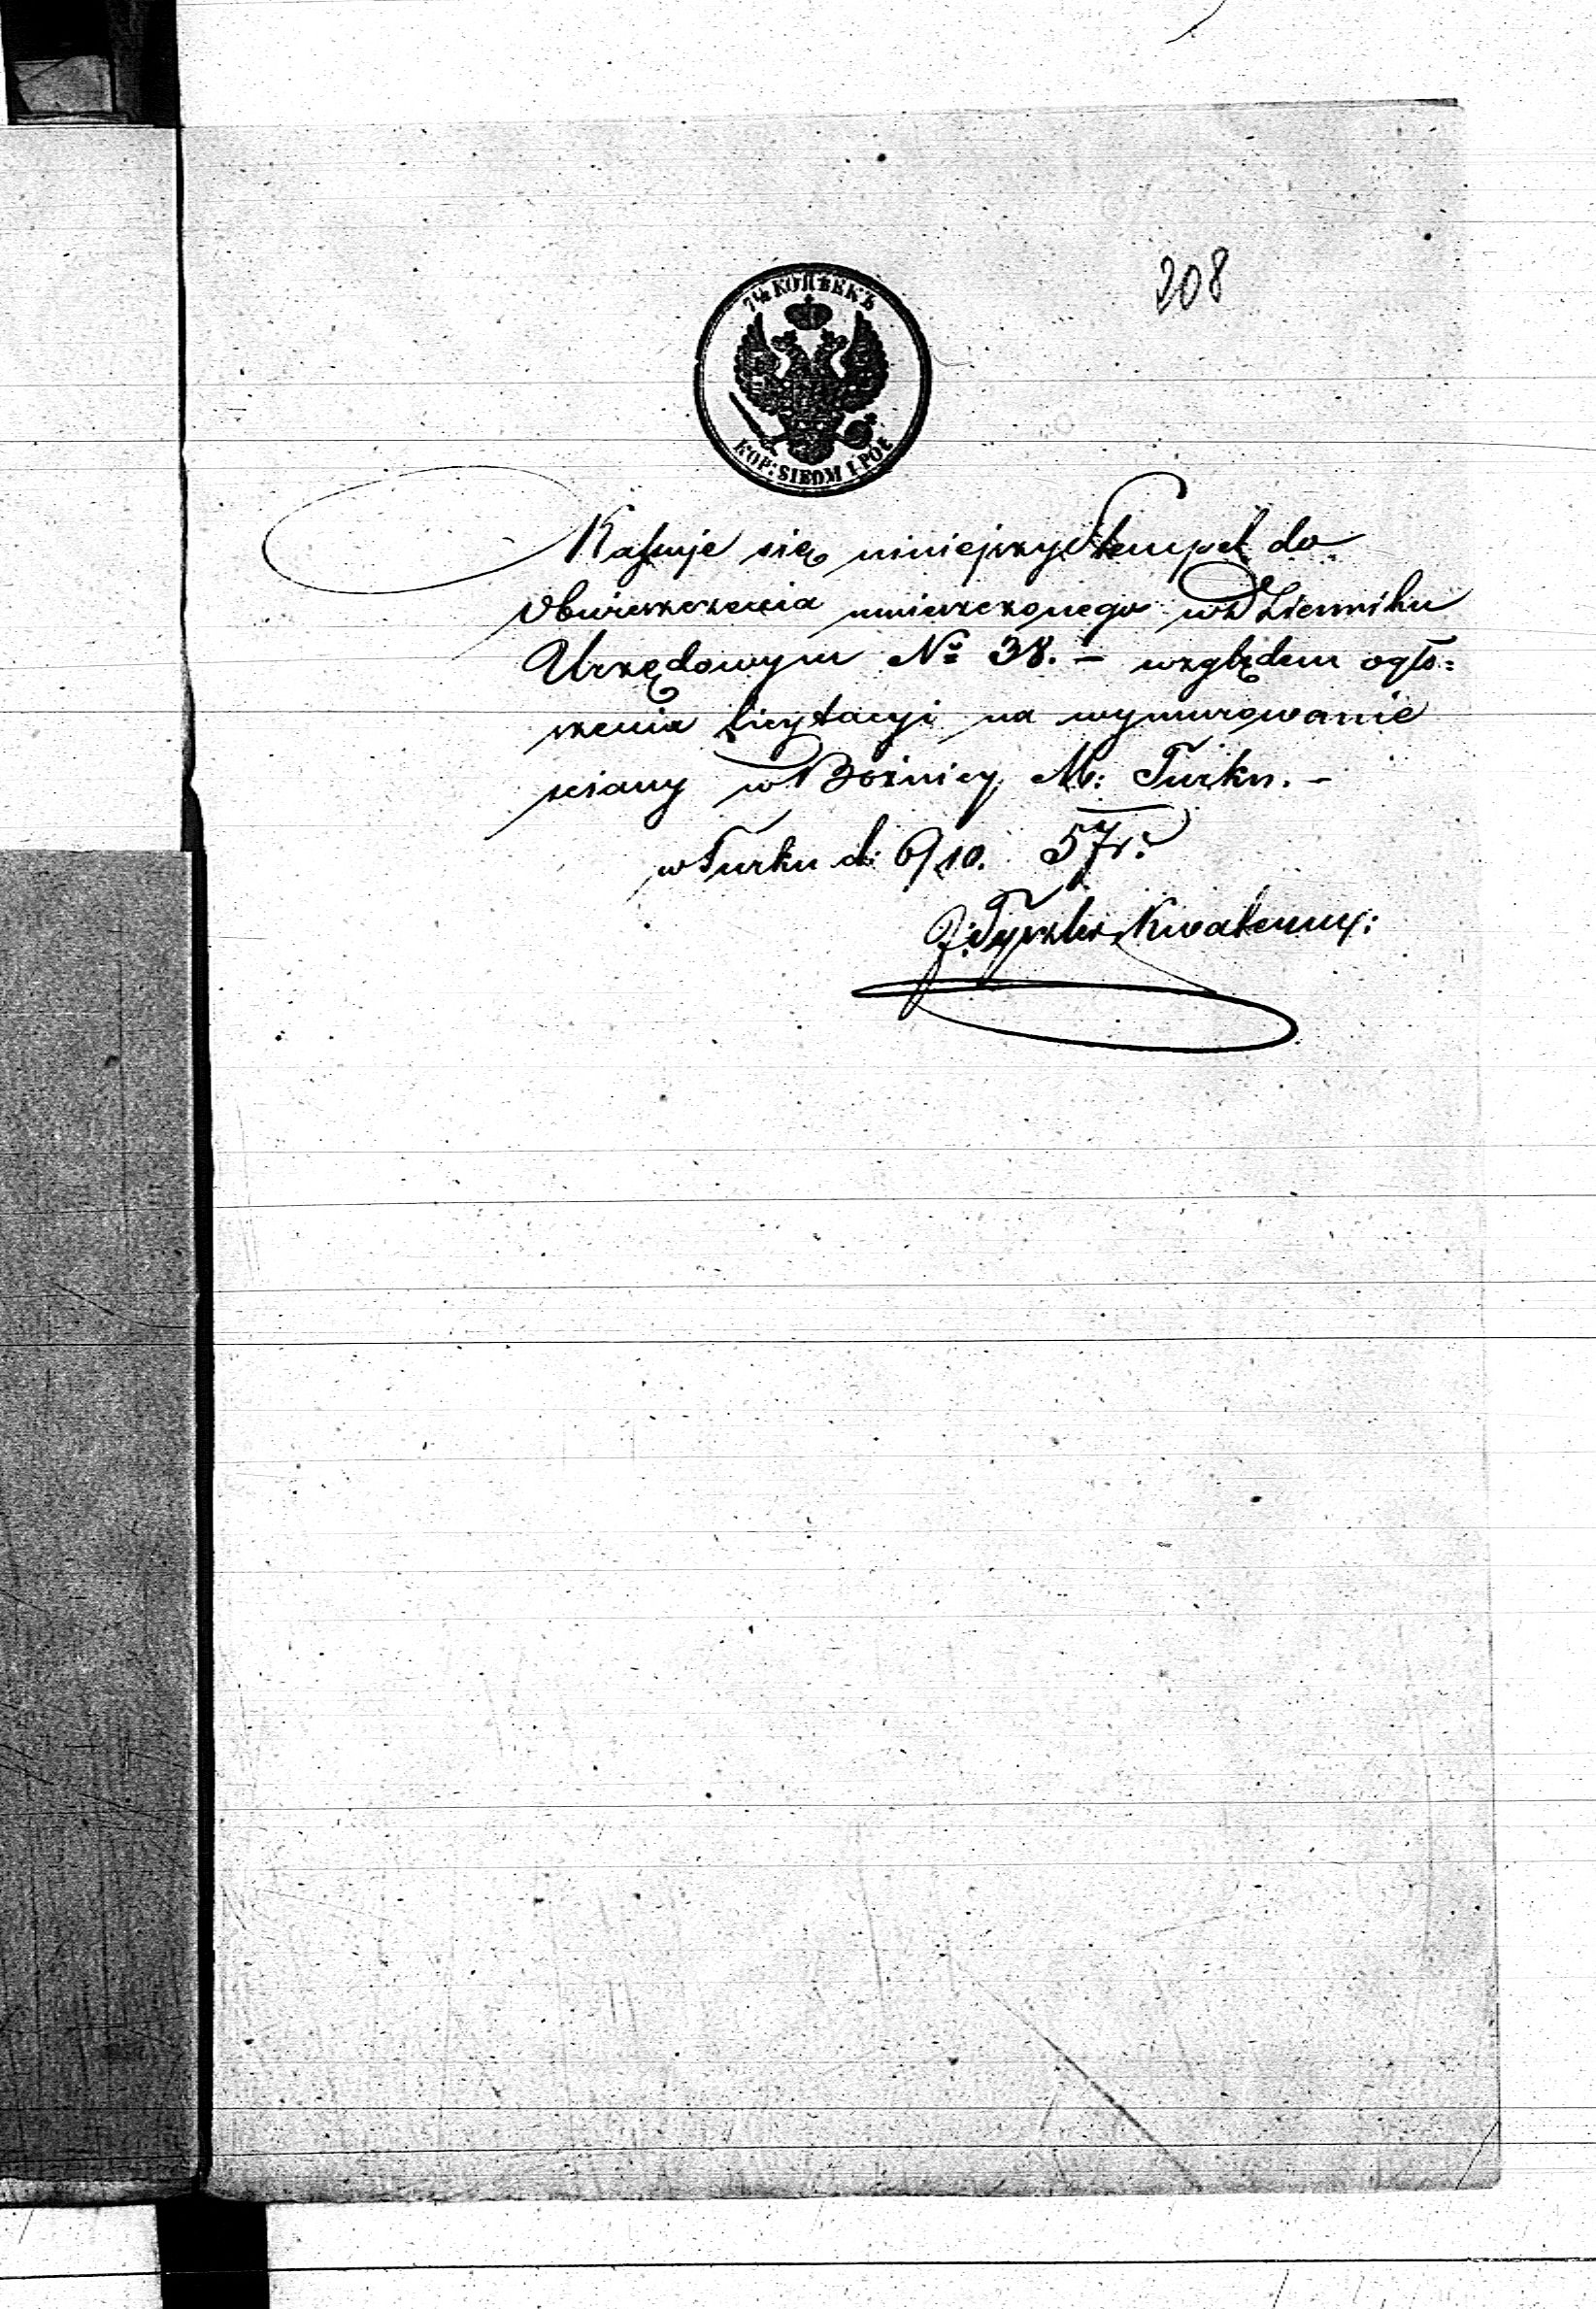 208
7½ КОПѢЕКЪ
KOP: SIEDM I PÓŁ
Kassuje się niniejszy Stempel do
Obwieszczenia umieszczonego w Dzienniku
Urzędowym No 38. – względem ogło=
szenia licytacyi na wymurowanie
sciany w Bożnicy M: Turku. –
w Turku d: 6/10. 57 r: